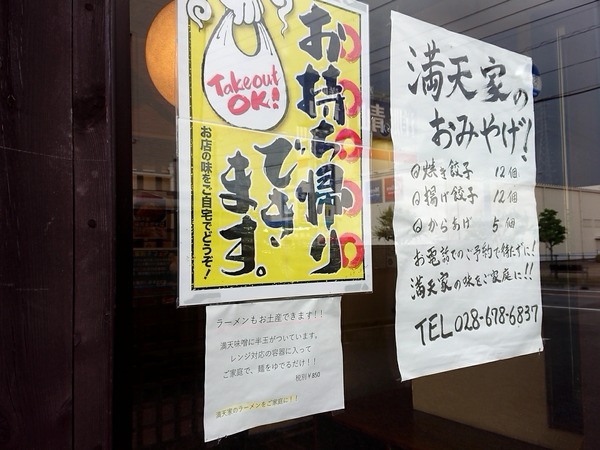 Takeout
OK!!
お持ち帰り
できます。
お店の味をご自宅でどうぞ！
満天家の
おみやげ！
焼き餃子 12個
揚げ餃子 12個
からあげ 5個
お電話でのご予約で待たずに！
満天家の味をご家庭に！！
TEL 028-678-6837
ラーメンもお土産できます！！
満天味噌に半玉がついています。
レンジ対応の容器に入って
ご家庭で、麺をゆでるだけ！！
税別￥850
満天家のラーメンをご家庭に！！